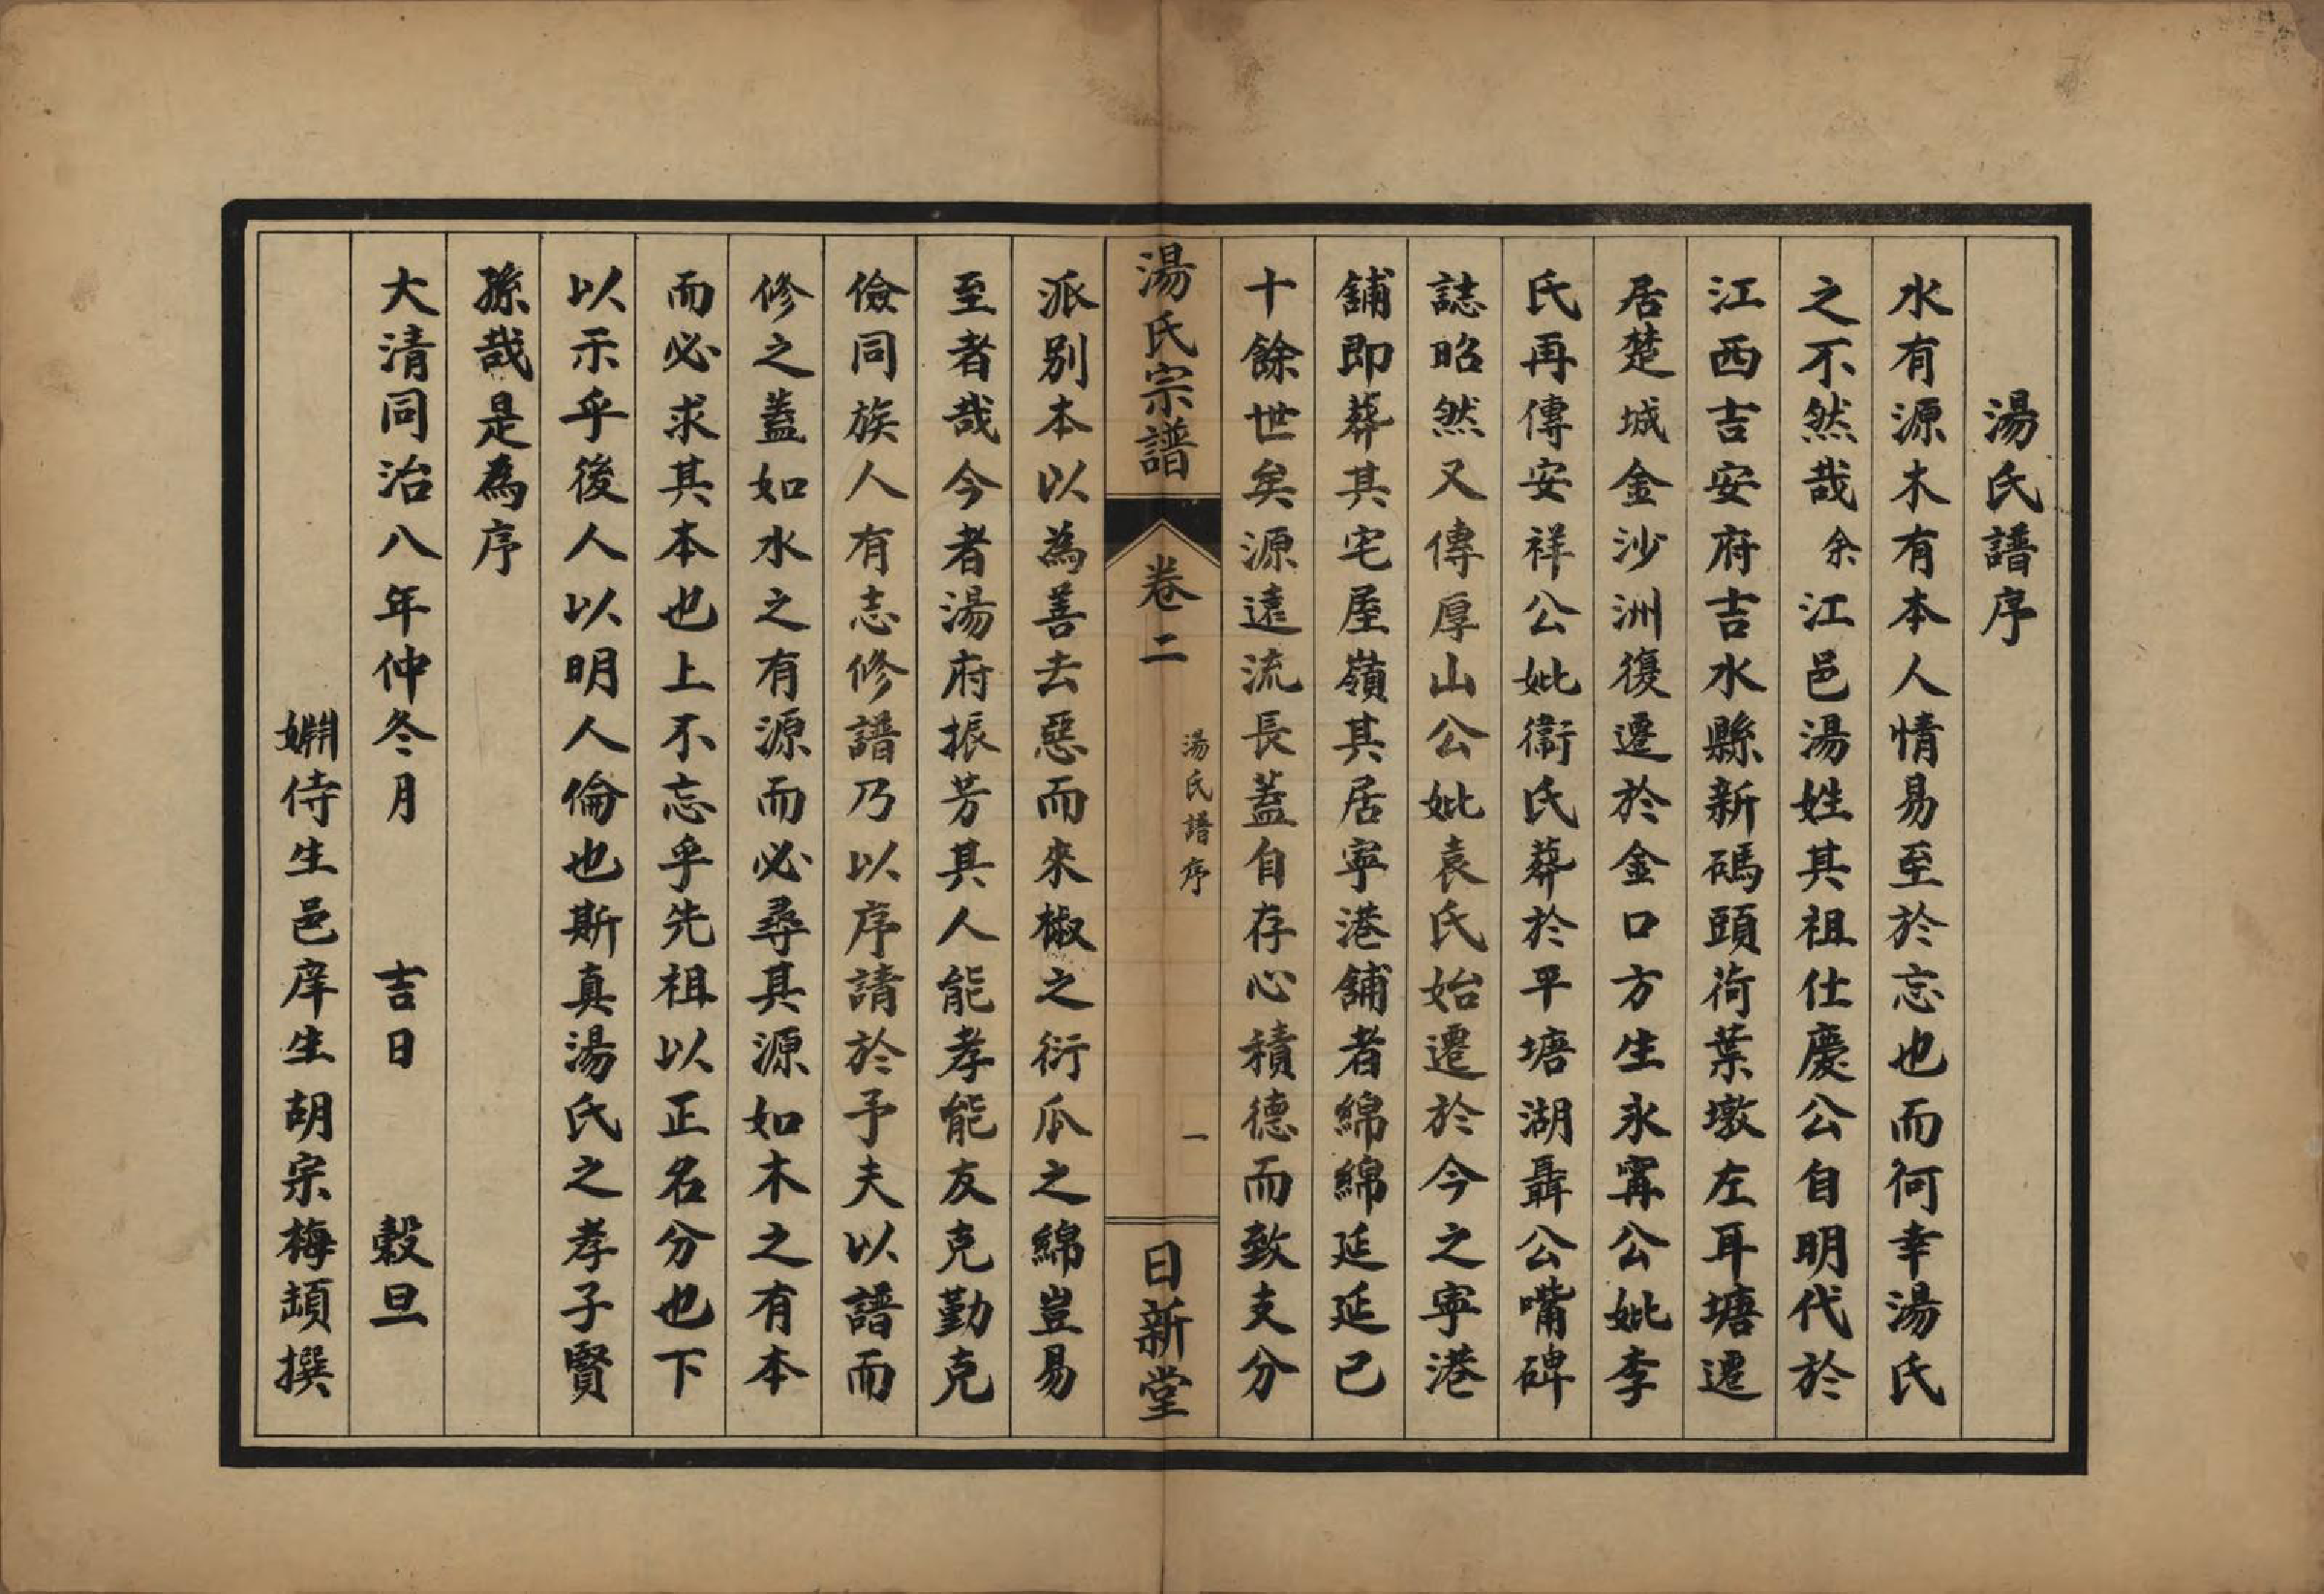 湯氏譜序
水有源木有本人情易至於忘也而何幸湯氏
之不然哉余江邑湯姓其祖仕慶公自明代於
江西吉安府吉水縣新碼頭荷葉墩左耳塘遷
居楚城金沙洲復遷於金口方生永寗公妣李
氏再傳安祥公妣衞氏葬於平塘湖聶公嘴碑
誌昭然又傳厚山公妣袁氏始遷於今之寜港
舖即葬其宅屋嶺其居寜港舖者綿綿延延已
十餘世矣源遠流長蓋自存心積德而致支分
湯氏宗譜
卷二
湯氏譜序
一
日新堂
派別本以為善去惡而來椒之衍瓜之綿豈易
至者哉今者湯府振芳其人能孝能友克勤克
儉同族人有志修譜乃以序請於予夫以譜而
修之蓋如水之有源而必尋其源如木之有本
而必求其本也上不忘乎先祖以正名分也下
以示乎後人以明人倫也斯真湯氏之孝子賢
孫哉是為序
大清同治八年仲冬月 吉日 穀旦
姻侍生邑庠生胡宗梅頓撰